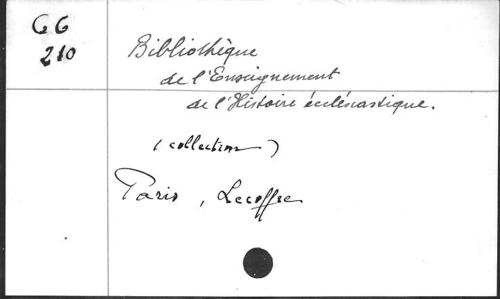 GG
210
Bibliothèque
de l'Enseignement
de l'Histoire écclésiastique.
(collection)
Paris, Lecoffre